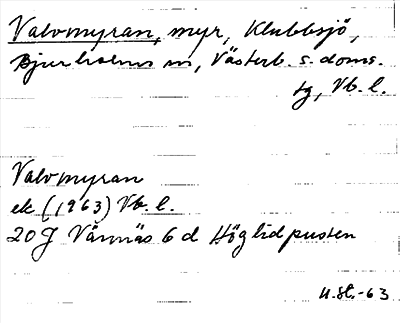 Valvmyran, myr, Klubbsjö,
Bjurholms sn, Västerb. s. doms.
tg, Vb. l.
Valvmyran
ek (1963) Vb. l.
20 J Vännäs 6 d Höglidpusten
U.St.-63